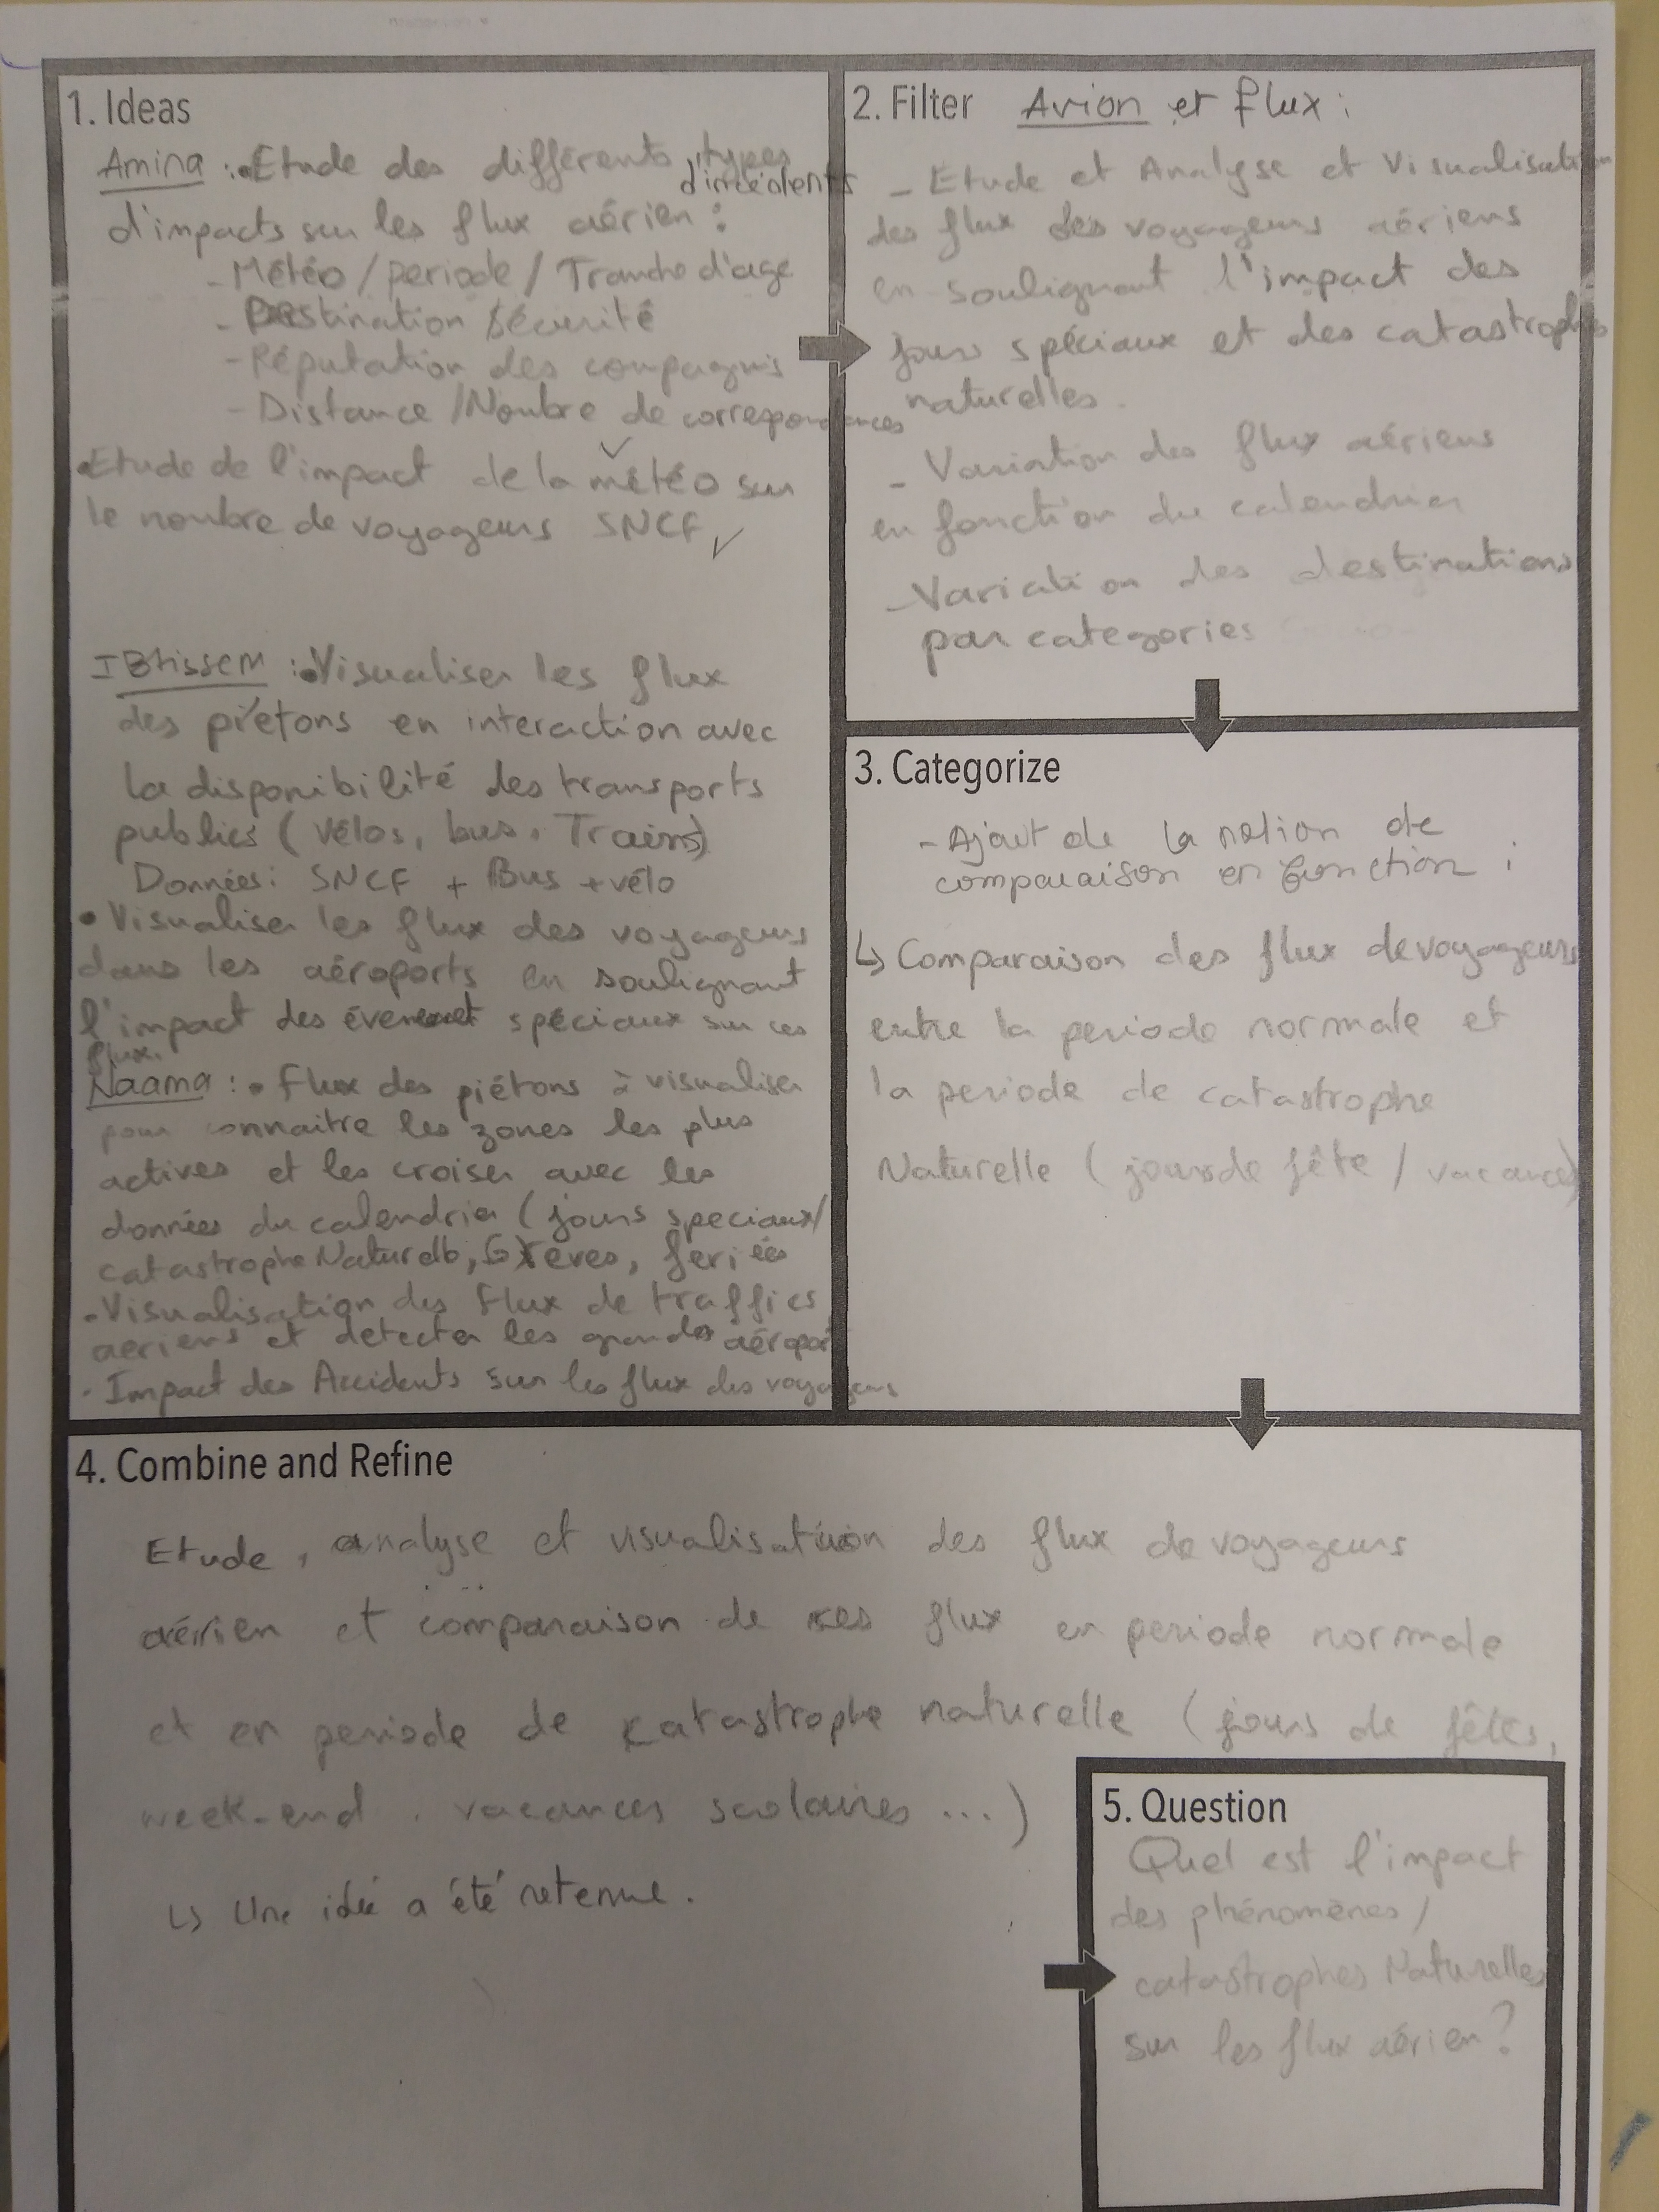 1. Ideas
Amina : • Etude des différents types
d'incidents
d'impacts sur les flux aérien :
- Météo / periode / Tranche d'age
- Destination / sécurité
- Réputation des compagnis
- Distance / Nombre de correspondances
• Etude de l'impact de la météo sur
le nombre de voyageurs SNCF
IBtissem : • Visualiser les flux
des piétons en interaction avec
la disponibilité des transports
publics ( vélos, bus, Trains)
Données : SNCF + Bus + vélo
• Visualiser les flux des voyageurs
dans les aéroports en soulignant
l'impact des évenemet spéciaux sur ces
flux.
Naama : • Flux des piétons à visualiser
pour connaitre les zones les plus
actives et les croiser avec les
données du calendrier ( jours speciaux /
catastrophe Naturelle, Grèves, feriés
- Visualisation des flux de traffics
aeriens et détecter les grands aéropor
- Impact des Accidents sur les flux des voyageurs
2. Filter Avion et flux :
- Etude et Analyse et Visualisation
des flux des voyageurs aériens
en soulignant l'impact des
jours spéciaux et des catastrophes
naturelles.
- Variation des flux aériens
en fonction du calendrier
- Variation des destinations
par categories
3. Categorize
- Ajout de la notion de
comparaison en fonction :
↳ Comparaison des flux de voyageurs
entre la periode normale et
la periode de catastrophe
Naturelle ( jours de fête / vacances)
4. Combine and Refine
Etude, analyse et visualisation des flux de voyageurs
aérien et comparaison de ces flux en periode normale
et en periode de catastrophe naturelle ( jours de fêtes,
week-end, vacances scolaires ... )
↳ Une idée a été retenue.
5. Question
Quel est l'impact
des phénomènes /
catastrophes Naturelles
sur les flux aérien ?